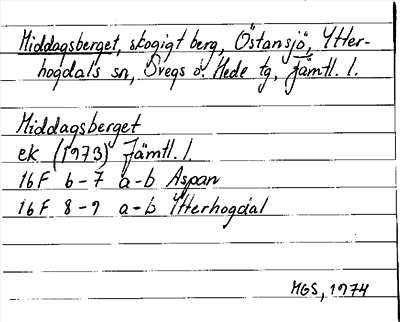 Middagsberget, skogigt berg, Östansjö, Ytter-
hogdal's sn, Svegs o. Hede tg, Jämtl. l.
Middagsberget
ek (1973) Jämtl. l.
16F 6-7 a-b Aspan
16F 8-9 a-b Ytterhogdal
MGS, 1974